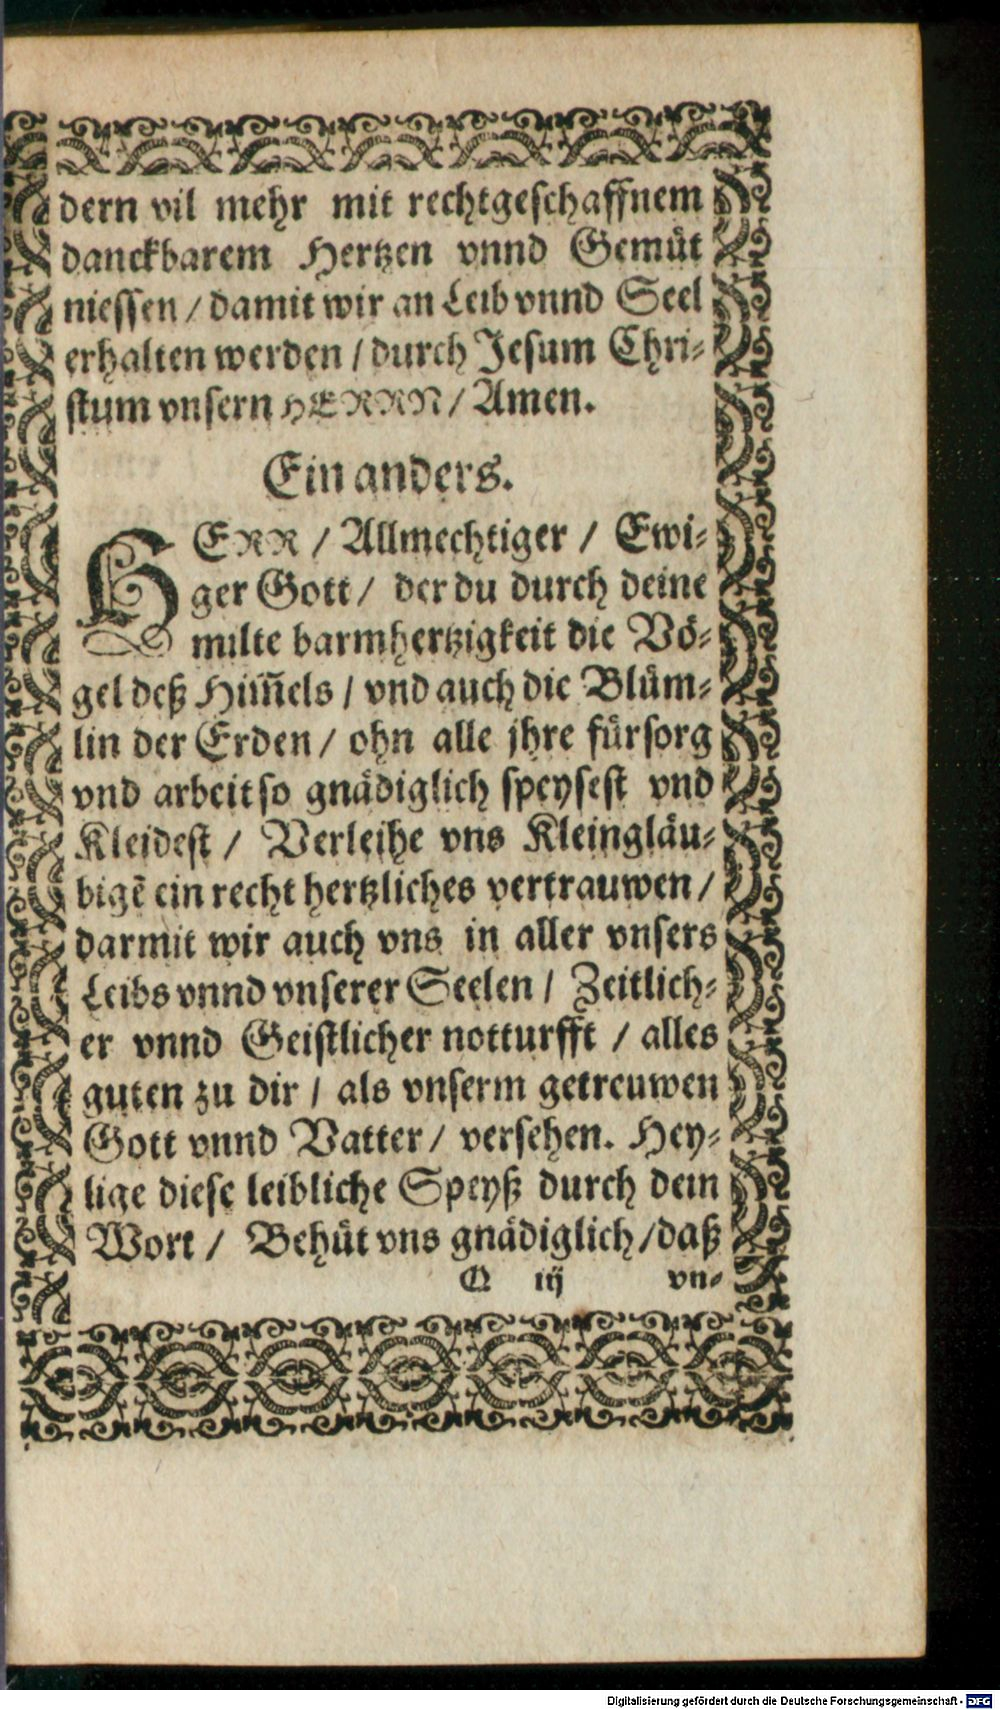 dern vil mehr mit rechtgeschaffnem
danckbarem Hertzen vnnd Gemüt
niessen / damit wir an Leib vnnd Seel
erhalten werden / durch Jesum Chri-
stum vnsern HERRN / Amen.
Ein anders.
HERR / Allmechtiger / Ewi-
ger Gott / der du durch deine
milte barmhertzigkeit die Vö-
gel deß Him̃els / vnd auch die Blüm-
lin der Erden / ohn alle jhre fürsorg
vnd arbeit so gnädiglich speysest vnd
Kleidest / Verleihe vns Kleingläu-
bigẽ ein recht hertzliches vertrauwen /
darmit wir auch vns in aller vnsers
Leibs vnnd vnserer Seelen / Zeitlich-
er vnnd Geistlicher notturfft / alles
guten zu dir / als vnserm getreuwen
Gott vnnd Vatter / versehen. Hey-
lige diese leibliche Speyß durch dein
Wort / Behüt vns gnädiglich / daß
Q iij vn-
Digitalisierung gefördert durch die Deutsche Forschungsgemeinschaft - DFG